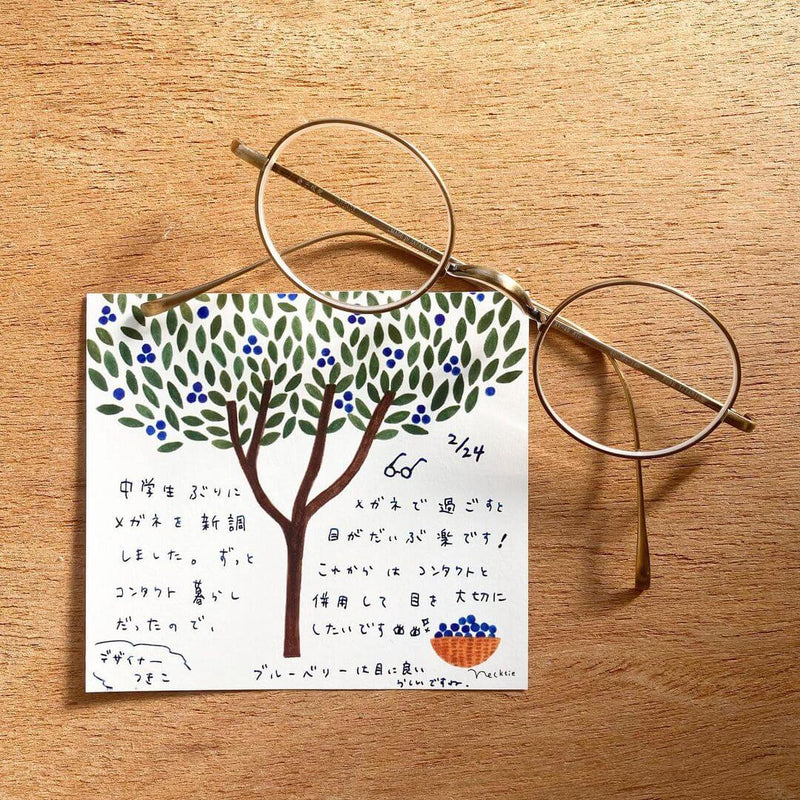 2/24
中学生ぶりに
メガネを新調
しました。ずっと
コンタクト暮らし
だったので、
メガネで過ごすと
目がだいぶ楽です!
これからはコンタクトと
併用して目を大切に
したいです
デザイナー
つきこ
ブルーベリーは目に良い
らしいですね.
necktie